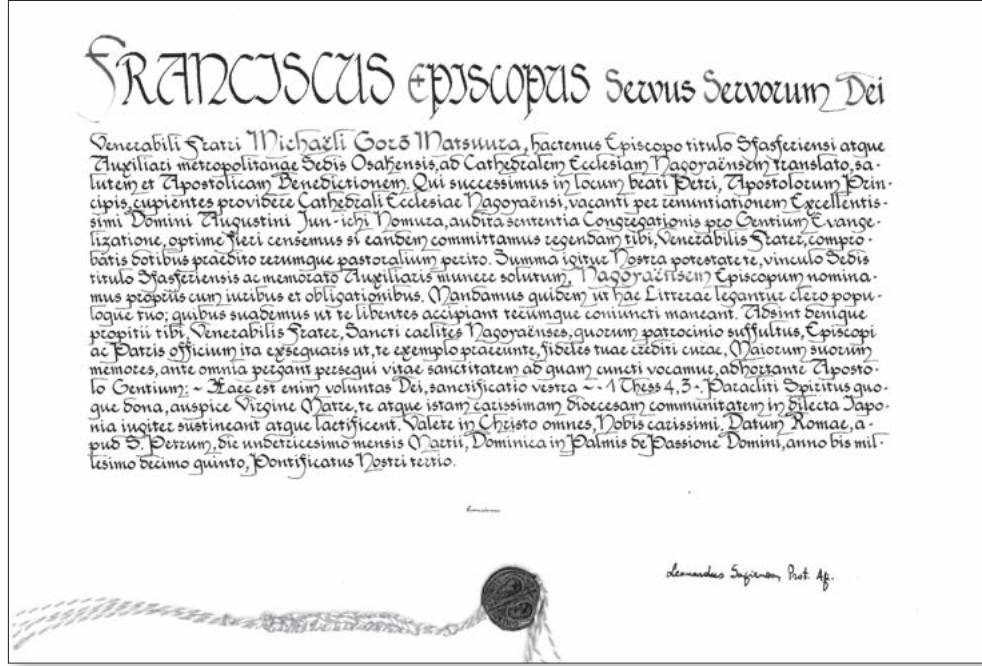 FRANCISCUS EPISCOPUS Servus Servorum Dei
Venerabili Fratri Michaëli Gorō Matsuura, hactenus Episcopo titulo Sfasferiensi atque
Auxiliari metropolitanae Sedis Osakensis, ad Cathedralem Ecclesiam Nagoyaënsem translato, sa-
lutem et Apostolicam Benedictionem. Qui successimus in locum beati Petri, Apostolorum Prin-
cipis, cupientes providere Cathedrali Ecclesiae Nagoyaënsi, vacanti per renuntiationem Excellentis-
simi Domini Augustini Jun-ichi Nomura, audita sententia Congregationis pro Gentium Evange-
lizatione, optime fieri censemus si eandem committamus regendam tibi, Venerabilis Frater, compro-
batis dotibus praedito rerumque pastoralium perito. Summa igitur Nostra potestate te, vinculo Sedis
titulo Sfasferiensis ac memorato Auxiliaris munere solutum, Nagoyaënsem Episcopum nomina-
mus propriis cum iuribus et obligationibus. Mandamus quidem ut hae Litterae legantur clero popu-
loque tuo; quibus suademus ut te libentes accipiant tecumque coniuncti maneant. Adsint denique
propitii tibi, Venerabilis Frater, Sancti caelites Nagoyaënses, quorum patrocinio suffultus, Episcopi
ac Patris officium ita exsequaris ut, te exemplo praeeunte, fideles tuae crediti curae, Maiorum suorum
memores, ante omnia pergant persequi vitae sanctitatem ad quam cuncti vocamur, adhortante Aposto-
lo Gentium: ~ Haec est enim voluntas Dei, sanctificatio vestra ~ - 1 Thess 4,3 -. Paracliti Spiritus quo-
que dona, auspice Virgine Matre, te atque istam carissimam dioecesam communitatem in dilecta Iapo-
nia iugiter sustineant atque laetificent. Valete in Christo omnes, Nobis carissimi. Datum Romae, a-
pud S. Petrum, die undetricesimo mensis Martii, Dominica in Palmis de Passione Domini, anno bis mil-
lesimo decimo quinto, Pontificatus Nostri tertio.
Franciscus
Leonardus Sapienza, Prot. Ap.